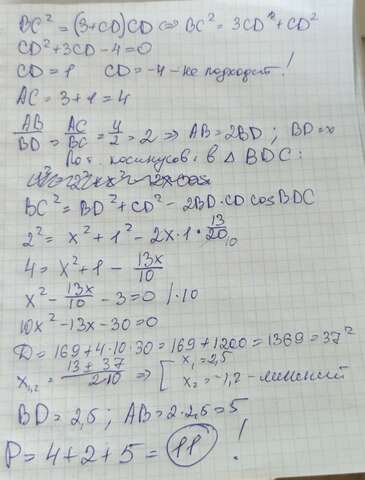 BC² = (3+CD)CD ⇔ BC² = 3CD + CD²
CD² + 3CD - 4 = 0
CD = 1 CD = -4 - не подходит!
AC = 3 + 1 = 4
AB/BD = AC/BC = 4/2 = 2 ⇒ AB = 2BD; BD = x
По т. косинусов, в Δ BDC:
BC² = BD² + CD² - 2BD·CD cosBDC
2² = x² + 1² - 2x·1·13/20 10
4 = x² + 1 - 13x/10
x² - 13x/10 - 3 = 0 /·10
10x² - 13x - 30 = 0
D = 169 + 4·10·30 = 169 + 1200 = 1369 = 37²
x₁,₂ = (13 ± 37)/(2·10) ⇒ [ x₁ = 2,5
x₂ = -1,2 - лишний
BD = 2,5; AB = 2·2,5 = 5
P = 4 + 2 + 5 = 11 !